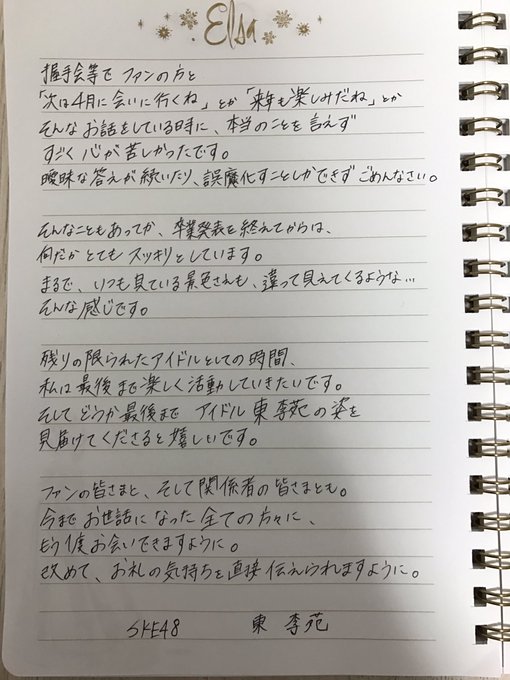 Elsa
握手会等で ファンの方と
「次は4月に会いに行くね」とか「来年も楽しみだね」とか
そんなお話をしている時に、本当のことを言えず
すごく心が苦しかったです。
曖昧な答えが続いたり、誤魔化すことしかできずごめんなさい。
そんなこともあってか、卒業発表を終えてからは、
何だかとてもスッキリとしています。
まるで、いつも見ている景色さえも、違って見えてくるような…
そんな感じです。
残りの限られたアイドルとしての時間、
私は最後まで楽しく活動していきたいです。
そしてどうか最後まで アイドル 東李苑の姿を
見届けてくださると嬉しいです。
ファンの皆さまと、そして関係者の皆さまとも。
今までお世話になった全ての方々に、
もう1度お会いできますように。
改めて、お礼の気持ちを直接伝えられますように。
SKE48 東 李苑